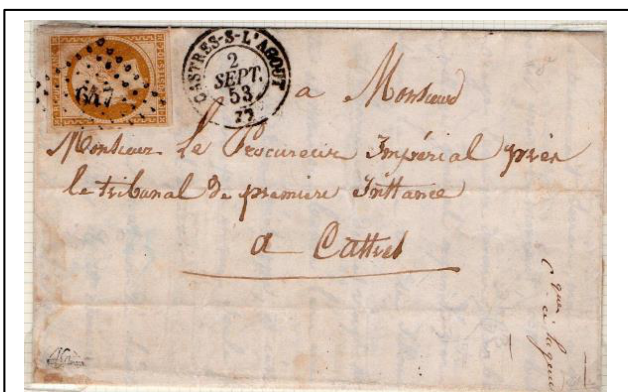 647
CASTRES-S-L'AGOUT
2
SEPT.
53
77
a Monsieur
Monsieur le Procureur Impérial près
le tribunal de première Instance
a Castres